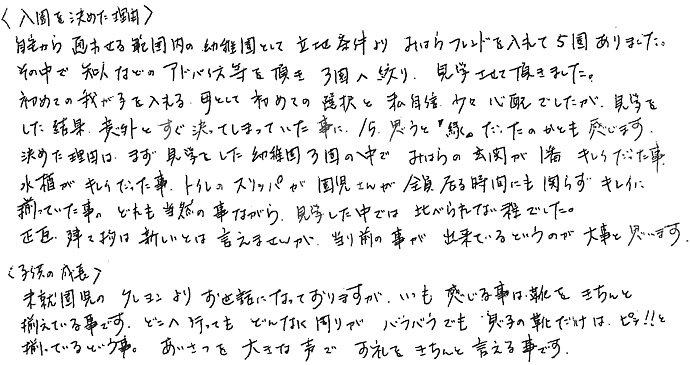 〈入園を決めた理由〉
自宅から通わせる範囲内の幼稚園として 立地条件より みはらフレンドを入れて5園ありました。
その中で 知人などの アドバイス等を頂き 3園へ絞り、見学させて頂きました。
初めての我が子を入れる、母として 初めての 選択と 私自信、少々 心配でしたが、見学を
した結果、意外と すぐ決ってしまっていた事に、今思うと『縁』だったのかとも感じます。
決めた理由は、まず 見学をした幼稚園3園の中で みはらの玄関が1番 キレイだった事、
水槽がキレイだった事、トイレのスリッパが 園児さんが 全員居る時間にも関らず キレイに
揃っていた事。どれも当然の事ながら、見学した中では 比べられない程でした。
正直、建て物は 新しいとは 言えませんが、当り前の事が 出来ているというのが 大事と思います。
〈子供の成長〉
未就園児の クレヨン より お世話になっておりますが、いつも 感じる事は、靴を きちんと
揃えている事です。どこへ行っても どんなに周りが バラバラでも 息子の靴だけは、ピシ!!と
揃っているという事。 あいさつを 大きな声で お礼を きちんと 言える事です。